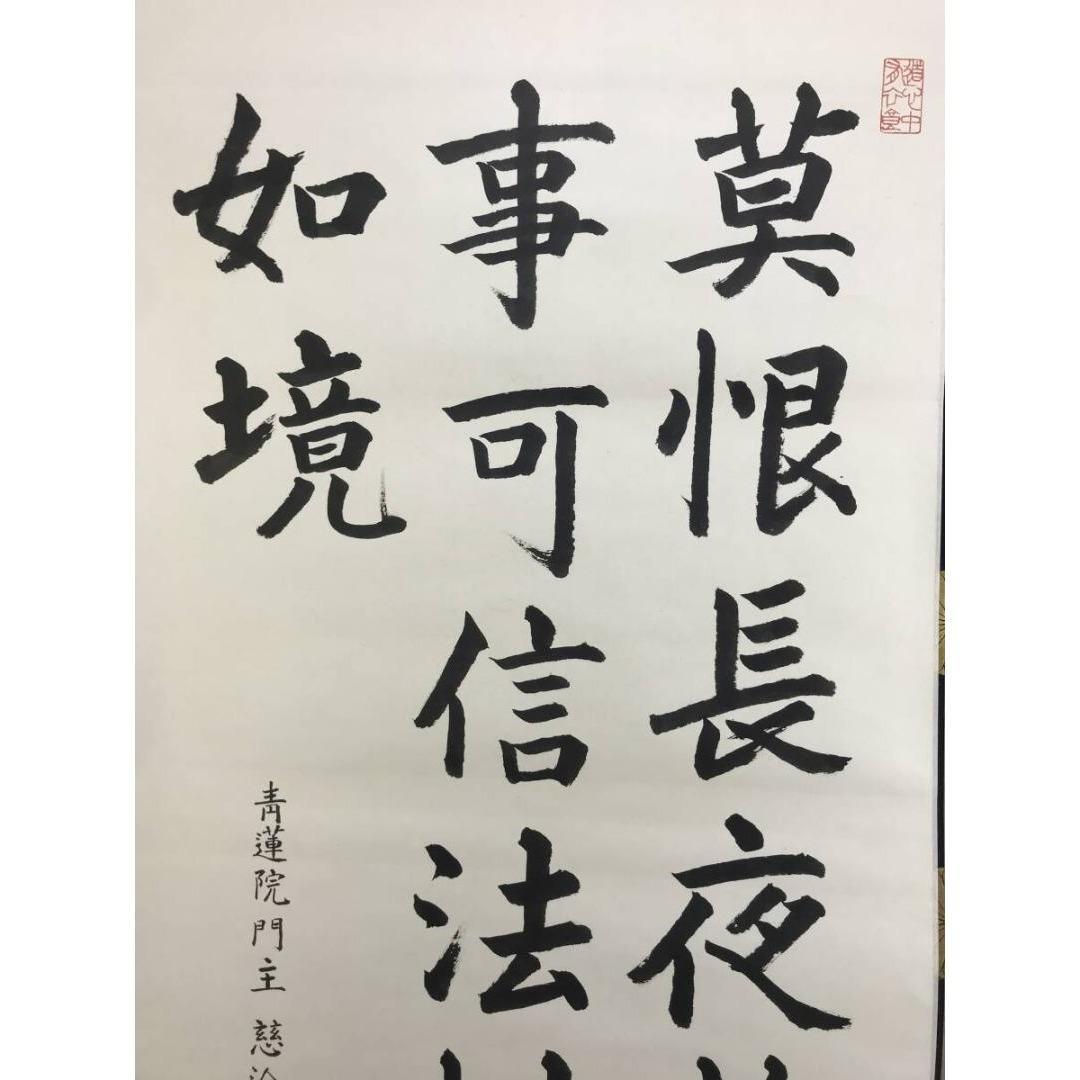 莫恨長夜
事可信法
如境
青蓮院門主 慈
道心中